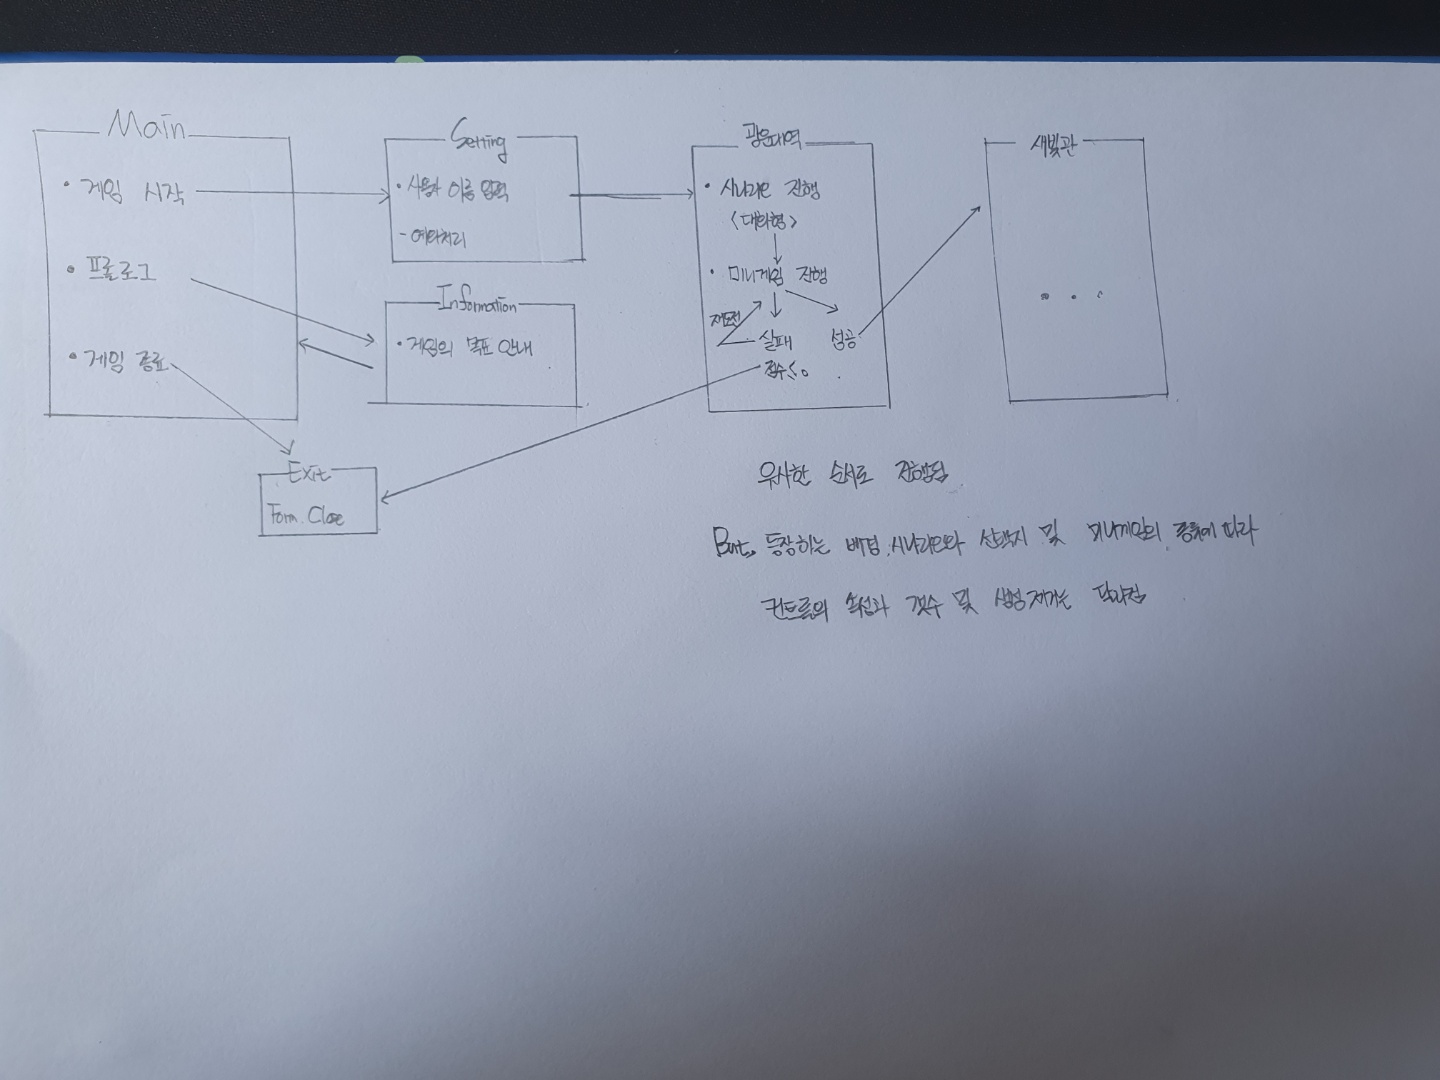 Main
• 게임 시작
• 프롤로그
• 게임 종료
Setting
• 사용자 이름 입력
- 예외처리
Information
• 게임의 목표 안내
Exit
Form. Close
광운대역
• 시나리오 진행
<대화형>
• 미니게임 진행
재도전
실패 성공
점수≤0
새빛관
• • •
유사한 순서로 진행됨
But, 등장하는 배경, 시나리오와 선택지 및 미니게임의 종류에 따라
컨트롤의 속성과 갯수 및 생성 제거는 달라짐